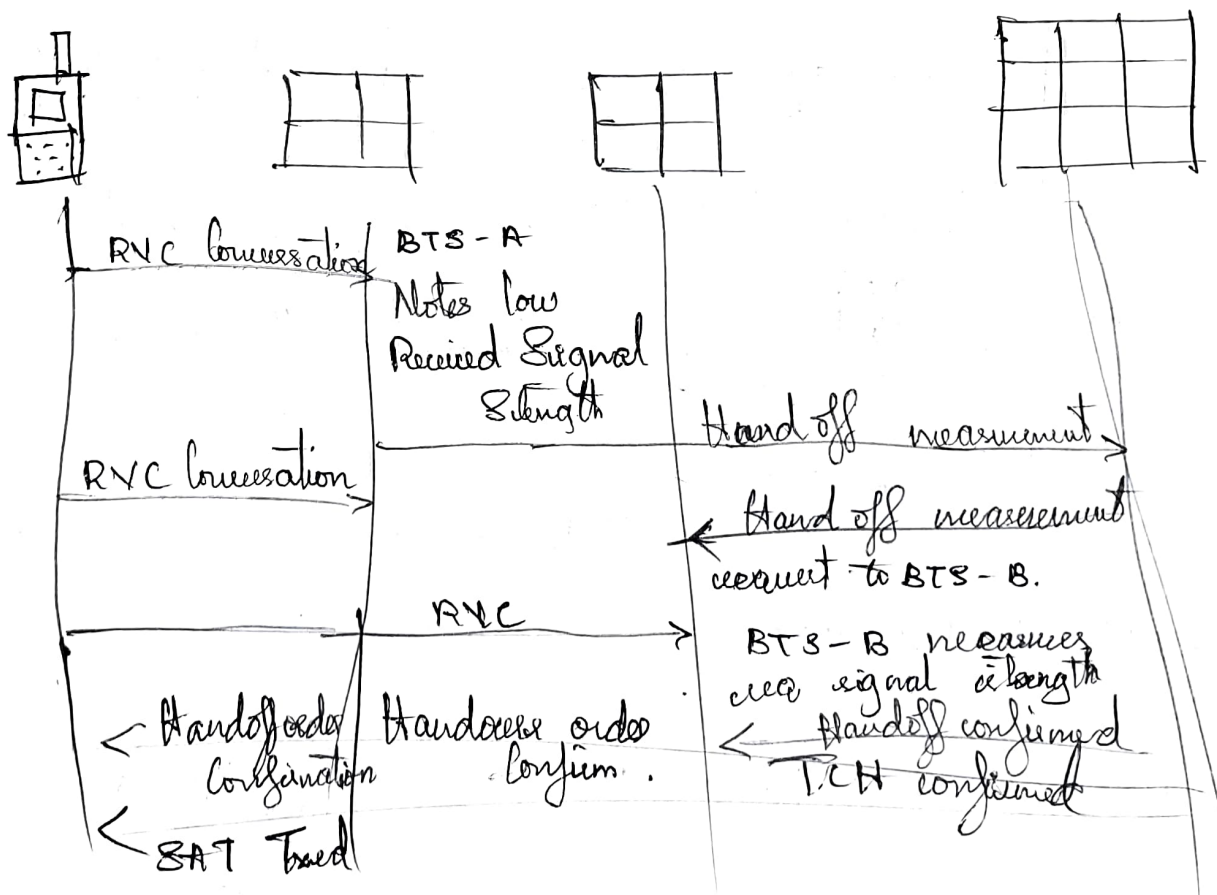 RVC Conversation
BTS-A
Notes low
Received Signal
Strength
Hand off measurement
RVC Conversation
Hand off measurement
request to BTS-B.
RVC
BTS-B measures
signal strength
Handoff order
Confirmation
Handover order
Confirm.
Handoff confirmed
T.CH confirmed
SAT Txed